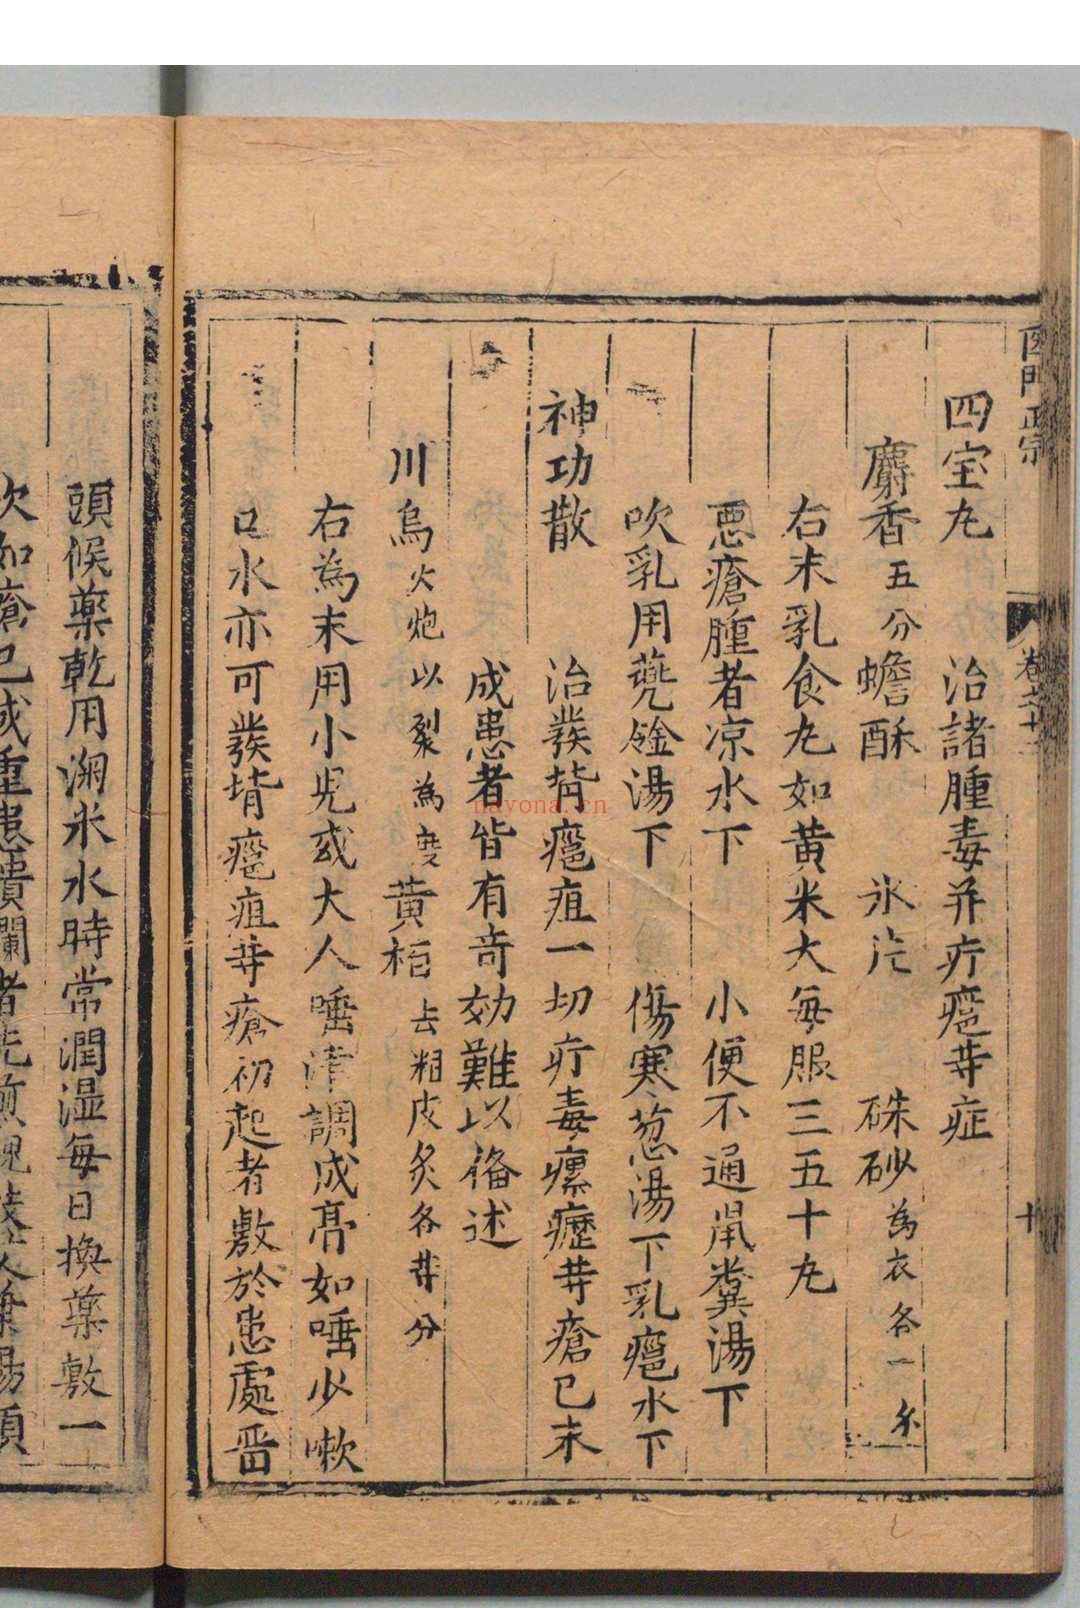 醫門正宗 卷之十一 十
四宝丸 治諸腫毒并疔瘡等症
麝香五分 蟾酥 氷片 硃砂為衣各一
右末乳食丸如黄米大每服三五十丸
悪瘡腫者凉水下 小便不通用糞湯下
吹乳用 湯下 傷寒葱湯下乳癰水下
神功散 治發背癰疽一切疔毒瘰癧等瘡已未
成患者皆有奇効難以俻述
川烏火炮以裂為度黄柏去粗皮炙各等分
右為末用小児或大人唾津調成膏如唾少嗽
口水亦可發背癰疽等瘡初起者敷於患處畱
頭候藥乾用渊米水時常潤湿每日換藥敷一
次如瘡已成重患潰爛者先煎 湯須
nayona.cn